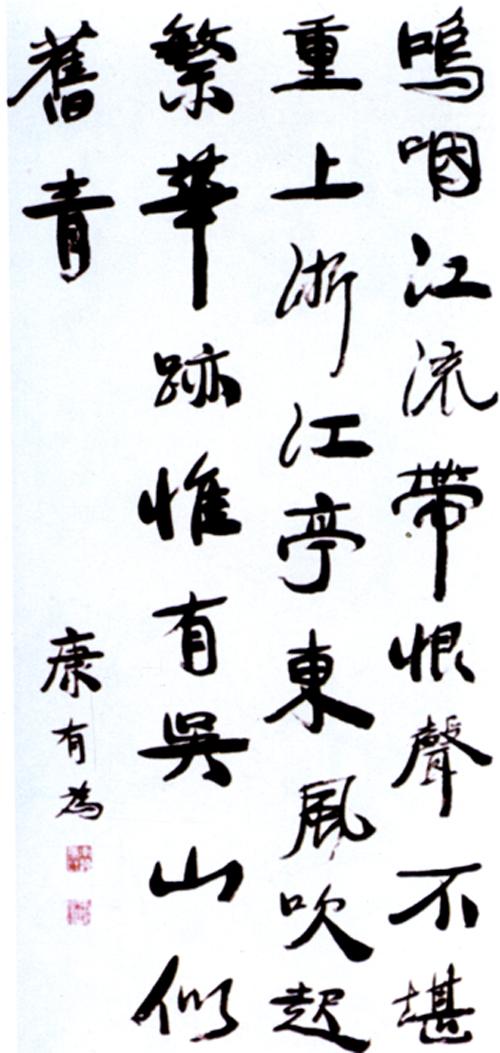 嗚咽江流帶恨聲不堪
重上浙江亭東風吹起
繁華跡惟有吳山似
舊青
康有為